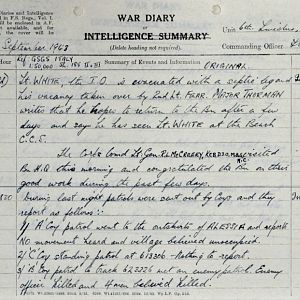 WAR DIARY
or
INTELLIGENCE SUMMARY
(Delete heading not required).
Diaries and Intelligence
in F.S. Regs., Vol. I.
be enclosed in A.F.
if this is not available,
Unit 6th Lincolns
Commanding Officer
September 1943
Ref GSGS ITALY
1:50,000
Summary of Events and Information
ORIGINAL
Lt. WHITE, the T.O. is evacuated with a septic leg and
his vacancy taken over by 2nd Lt. FARR. MAJOR THORMAN
writes that he hopes to return to the Bn after a few
days and say he has seen Lt. WHITE at the Beach
C.C.S.
The Corps Comd Lt. Gen. R.L. McCREERY, visited
Bn H.Q this morning and congratulated the Bn on their
good work during the past few days.
During last night patrols were sent out by Coys and they
report as follows:-
1/ A Coy patrol went to the outskirts of ALESSIA and report
No movement heard and village believed unoccupied.
2/ 'C' Coy standing patrol at 613306 - Nothing to report.
3/ 'A' Coy patrol to track met an enemy patrol. Enemy
officer killed and 4 men believed killed.